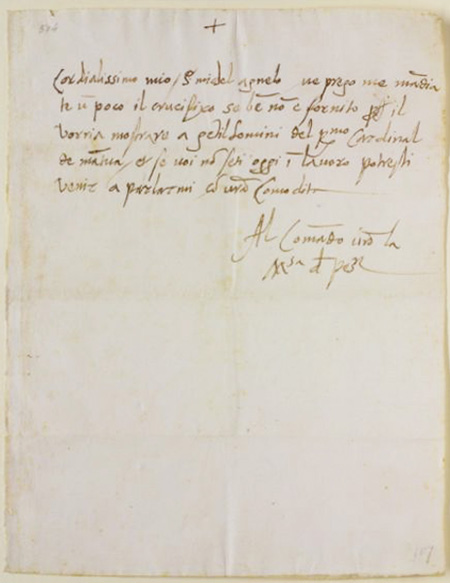 +
Cordialissimo mio S. michel agnelo ve prego me mādia
te ū poco il crucifixo se bē nō è fornito il
vorria mostrare a getilhomini del Rmo Cardinal
de mātua et se voi nō seti oggi ī lavoro potresti
venir a parlarmi cō vrā comodità
Al Comādo vrō la
Msa d pesᵃ